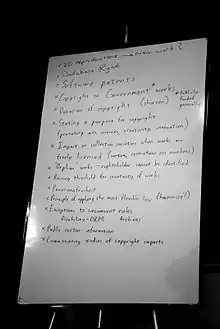 * 2D reproductions → new work?
* Database Rights
* Software patents
* Copyright in Government works
* Publicly funded
* Duration of copyright (shorten)
* Stating a purpose for copyright
(promoting arts, sciences, creativity, innovation)
* Impact on collective societies when works are
freely licensed
* Orphan works - rightsholder cannot be identified
* Raising threshold for creativity of works
* Panoramafreiheit
* Principle of applying the most flexible law (harmonize?)
* Exceptions to circumvent rules
Disability - DRM Archives
* Public sector information
* Commissioning studies of copyright impacts